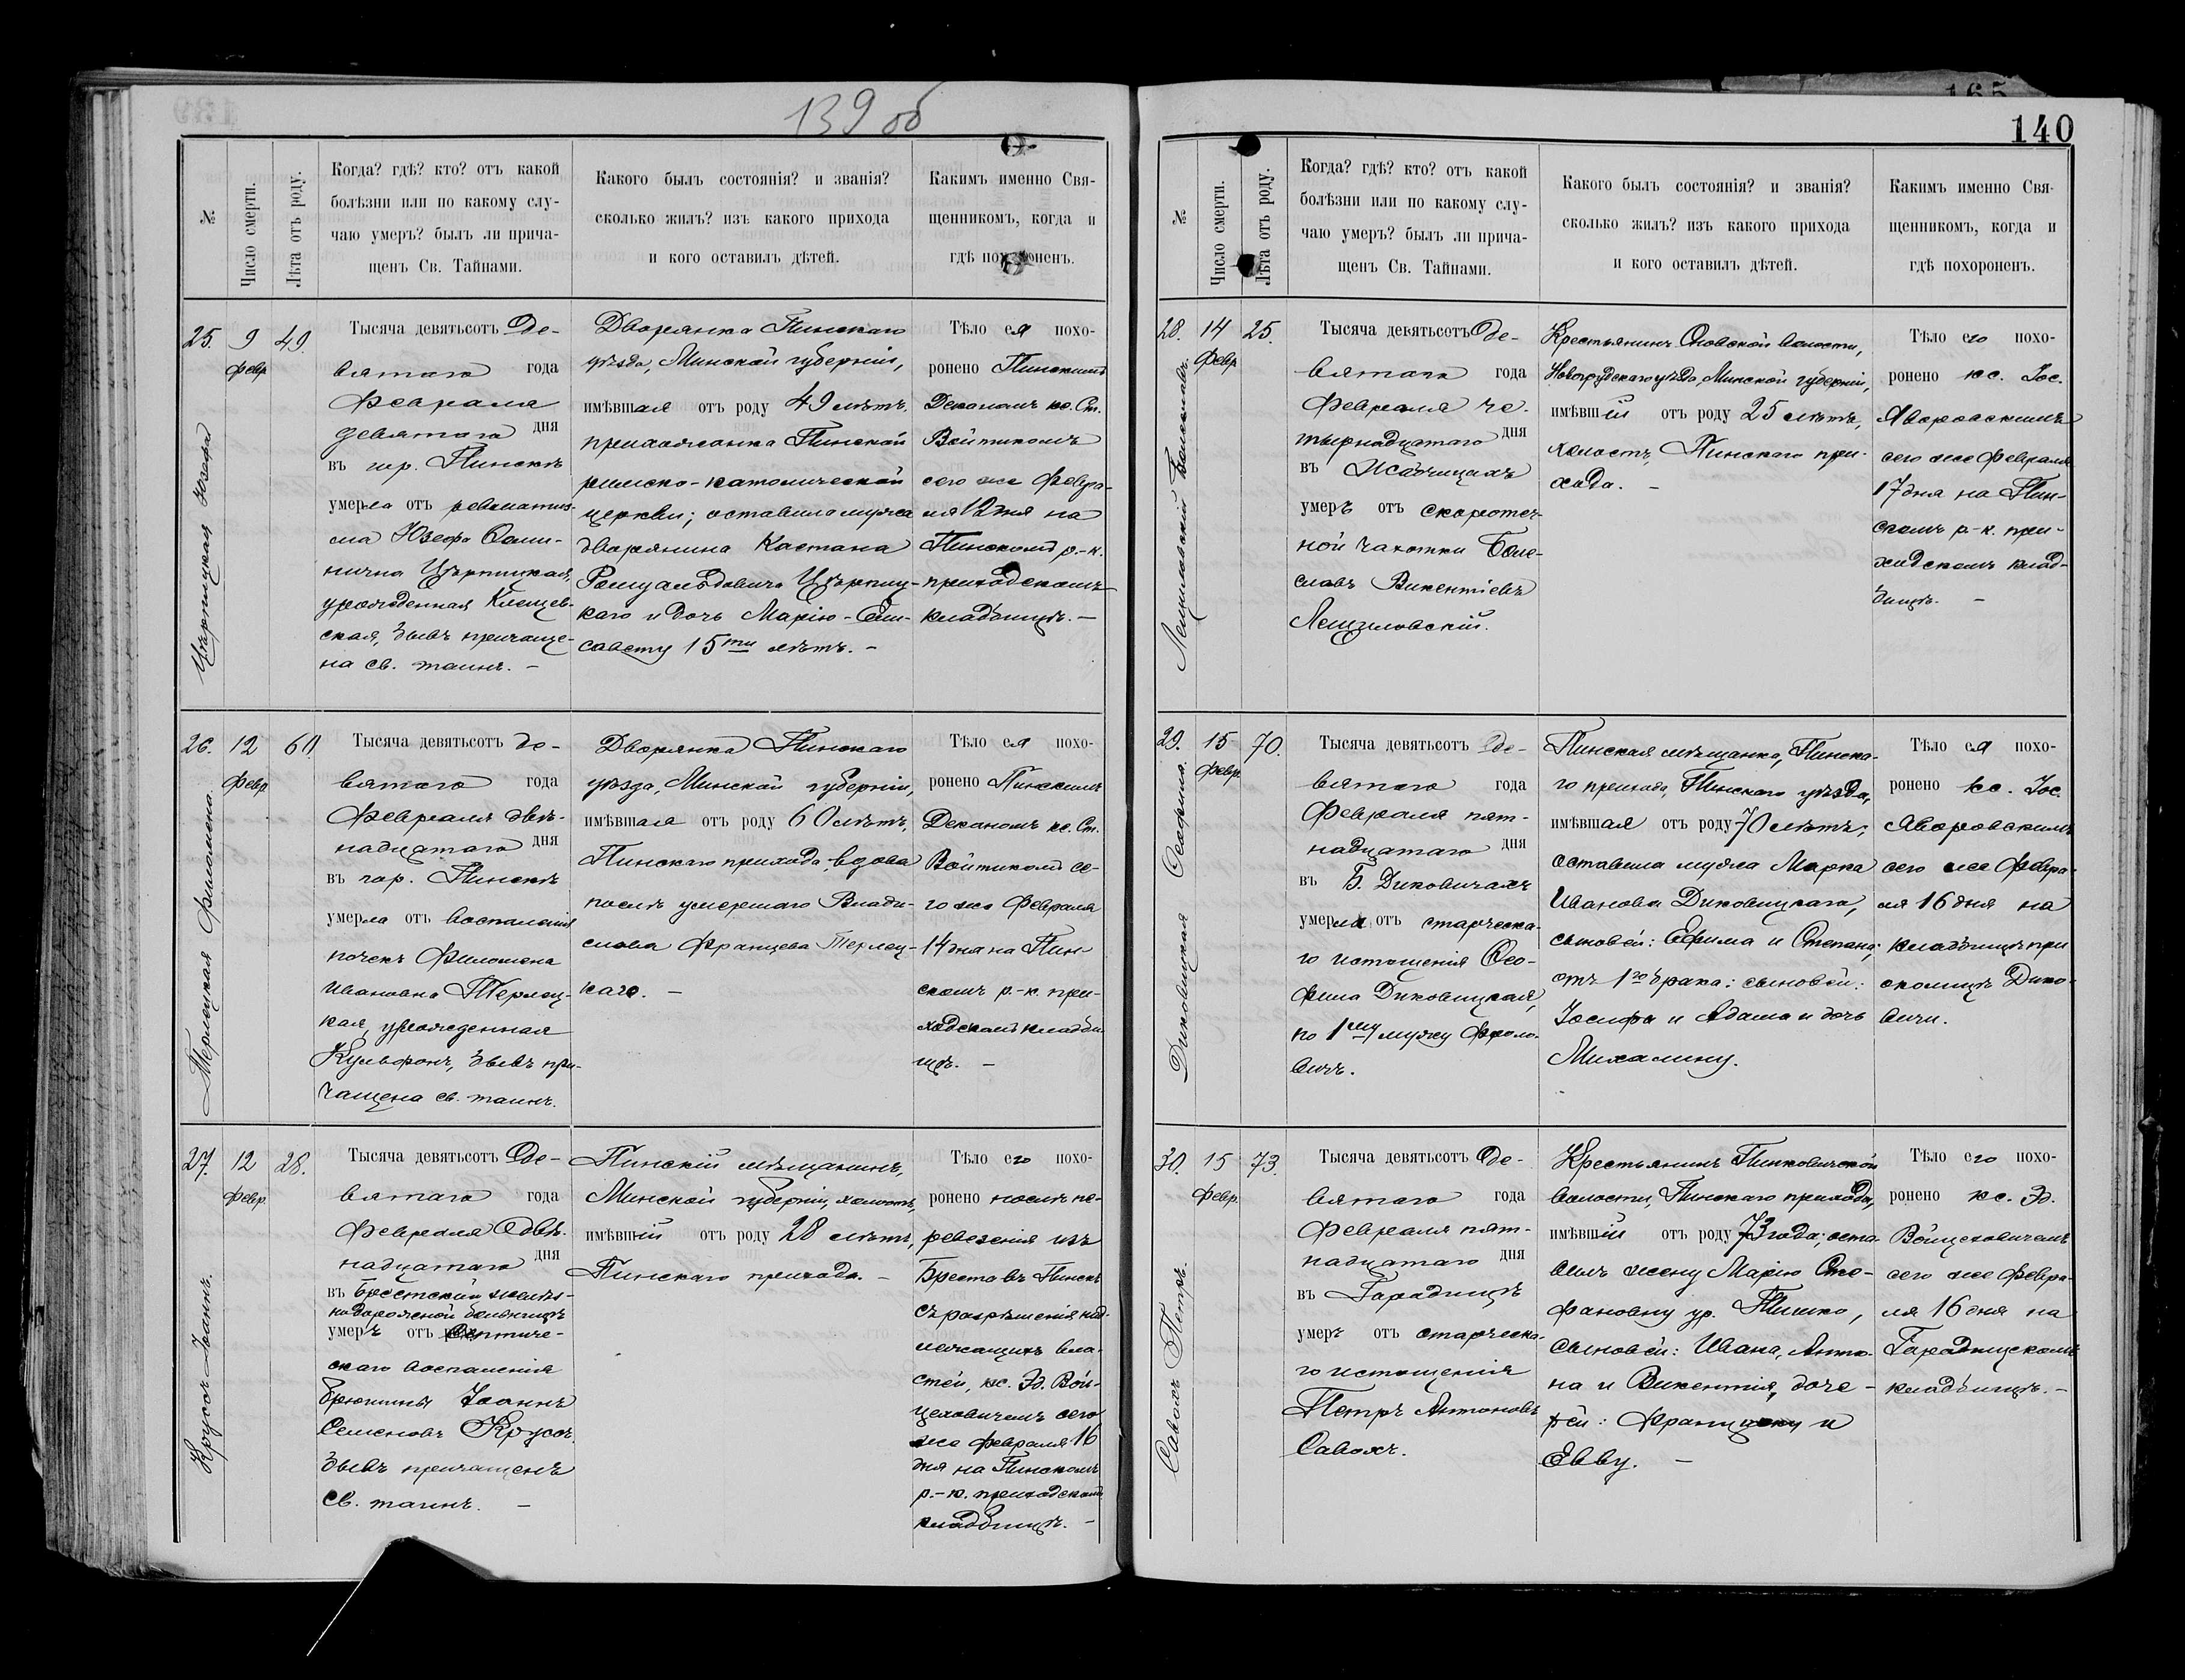 139 об
№
Число смерти.
Лѣта отъ роду.
Когда? гдѣ? кто? отъ какой
болѣзни или по какому слу-
чаю умеръ? былъ ли прича-
щенъ Св. Тайнами.
Какого былъ состоянія? и званія?
сколько жилъ? изъ какого прихода
и кого оставилъ дѣтей.
Какимъ именно Свя-
щенникомъ, когда и
гдѣ похороненъ.
25.
9
февр
49.
Юзефа
Тысяча девятьсотъ де-
вятаго года
Февраля
девятаго дня
въ гор. Пинскѣ
умерла отъ ревматиз-
ма Юзефа
урожденная Клещев-
ская, бывъ причаще-
на св. таинъ. –
Дворянка Пинскаго
уѣзда, Минской губерніи,
имѣвшая отъ роду 49 лѣтъ,
прихожанка Пинской
римско-католической
церкви; оставила мужа
дворянина Каетана
Ромуальдовича
каго и дочь Марію-Ели-
савету 15ти лѣтъ. –
Тѣло ея похо-
ронено Пинскимъ
Деканомъ кс. Ст.
Войтикомъ
сего же Февра-
ля 12 дня на
Пинскомъ р.-к.
приходскомъ
кладбищѣ. –
26.
12
февр
60
Терлецкая Филомена.
Тысяча девятьсотъ де-
вятаго года
Февраля двѣ-
надцатаго дня
въ гор. Пинскѣ
умерла отъ воспаленія
почекъ Филомена
Ивановна Терлец-
кая, урожденная
бывъ при-
чащена св. таинъ.
Дворянка Пинскаго
уѣзда, Минской губерніи,
имѣвшая отъ роду 60 лѣтъ,
Пинскаго прихода, вдова
послѣ умершаго Влади-
слава Францева Терлец-
каго. –
Тѣло ея похо-
ронено Пинскимъ
Деканомъ кс. Ст.
Войтикомъ се-
го же Февраля
14 дня на Пин-
скомъ р.-к. при-
ходскомъ кладби-
щѣ. –
27.
12
февр.
28.
Крусъ Іоаннъ.
Тысяча девятьсотъ де-
вятаго года
Февраля двѣ-
надцатаго дня
въ Брестской желѣз-
нодорожной больницѣ
умеръ отъ септиче-
скаго воспаленія
брюшины Іоаннъ
Семеновъ Крусъ,
бывъ причащенъ
св. таинъ. –
Пинскій мѣщанинъ,
Минской губерніи, холостъ,
имѣвшій отъ роду 28 лѣтъ,
Пинскаго прихода. –
Тѣло его похо-
ронено послѣ пе-
ревезенія изъ
Бреста въ Пинскъ
съ разрѣшенія над-
лежащихъ вла-
стей, кс. Эд. Вой-
цеховичемъ сего
же февраля 16
дня на Пинскомъ
р.-к. приходскомъ
кладбищѣ. –
165
140
№
Число смерти.
Лѣта отъ роду.
Когда? гдѣ? кто? отъ какой
болѣзни или по какому слу-
чаю умеръ? былъ ли прича-
щенъ Св. Тайнами.
Какого былъ состоянія? и званія?
сколько жилъ? изъ какого прихода
и кого оставилъ дѣтей.
Какимъ именно Свя-
щенникомъ, когда и
гдѣ похороненъ.
28.
14
Февр
25.
Лещиловскій Болеславъ.
Тысяча девятьсотъ де-
вятаго года
Февраля че-
тырнадцатаго дня
въ
умеръ отъ скоротеч-
ной чахотки Боле-
славъ Викентіевъ
Лещиловскій.
Крестьянинъ Сновской волости,
Новогрудскаго уѣзда, Минской губерніи,
имѣвшій отъ роду 25 лѣтъ,
холостъ, Пинскаго при-
хода. –
Тѣло его похо-
ронено кс. Іос.
Яворовскимъ
сего же Февраля
17 дня на Пин-
скомъ р.-к. при-
ходскомъ клад-
бищѣ. –
29.
15
февр.
70.
Диковицкая Ѳеофила.
Тысяча девятьсотъ де-
вятаго года
Февраля пят-
надцатаго дня
въ Б. Диковичахъ
умерла отъ старческа-
го истощенія Ѳео-
фила Диковицкая,
по 1му мужу Фроло-
вичъ.
Пинская мѣщанка, Пинска-
го прихода, Пинскаго уѣзда,
имѣвшая отъ роду 70 лѣтъ;
оставила мужа Марка
Иванова Диковицкаго,
сыновей: Ефима и Степана;
отъ 1го брака: сыновей:
Іосифа и Адама и дочь
Михалину.
Тѣло ея похо-
ронено кс. Іос.
Яворовскимъ
сего же Февра-
ля 16 дня на
кладбищѣ при
околицѣ Дико-
вичи.
30.
15
февр.
73.
Савохъ Петръ.
Тысяча девятьсотъ де-
вятаго года
Февраля пят-
надцатаго дня
въ Городищѣ
умеръ отъ старческа-
го истощенія
Петръ Антоновъ
Савохъ.
Крестьянинъ Пинковичской
волости, Пинскаго прихода,
имѣвшій отъ роду 73 года; оста-
вилъ жену Марію Сте-
фановну ур.
сыновей: Ивана, Анто-
на и Викентія, доче-
рей: Францишку и
Евву. –
Тѣло его похо-
ронено кс. Эд.
Войцеховичемъ
сего же Февра-
ля 16 дня на
Городищскомъ
кладбищѣ. –